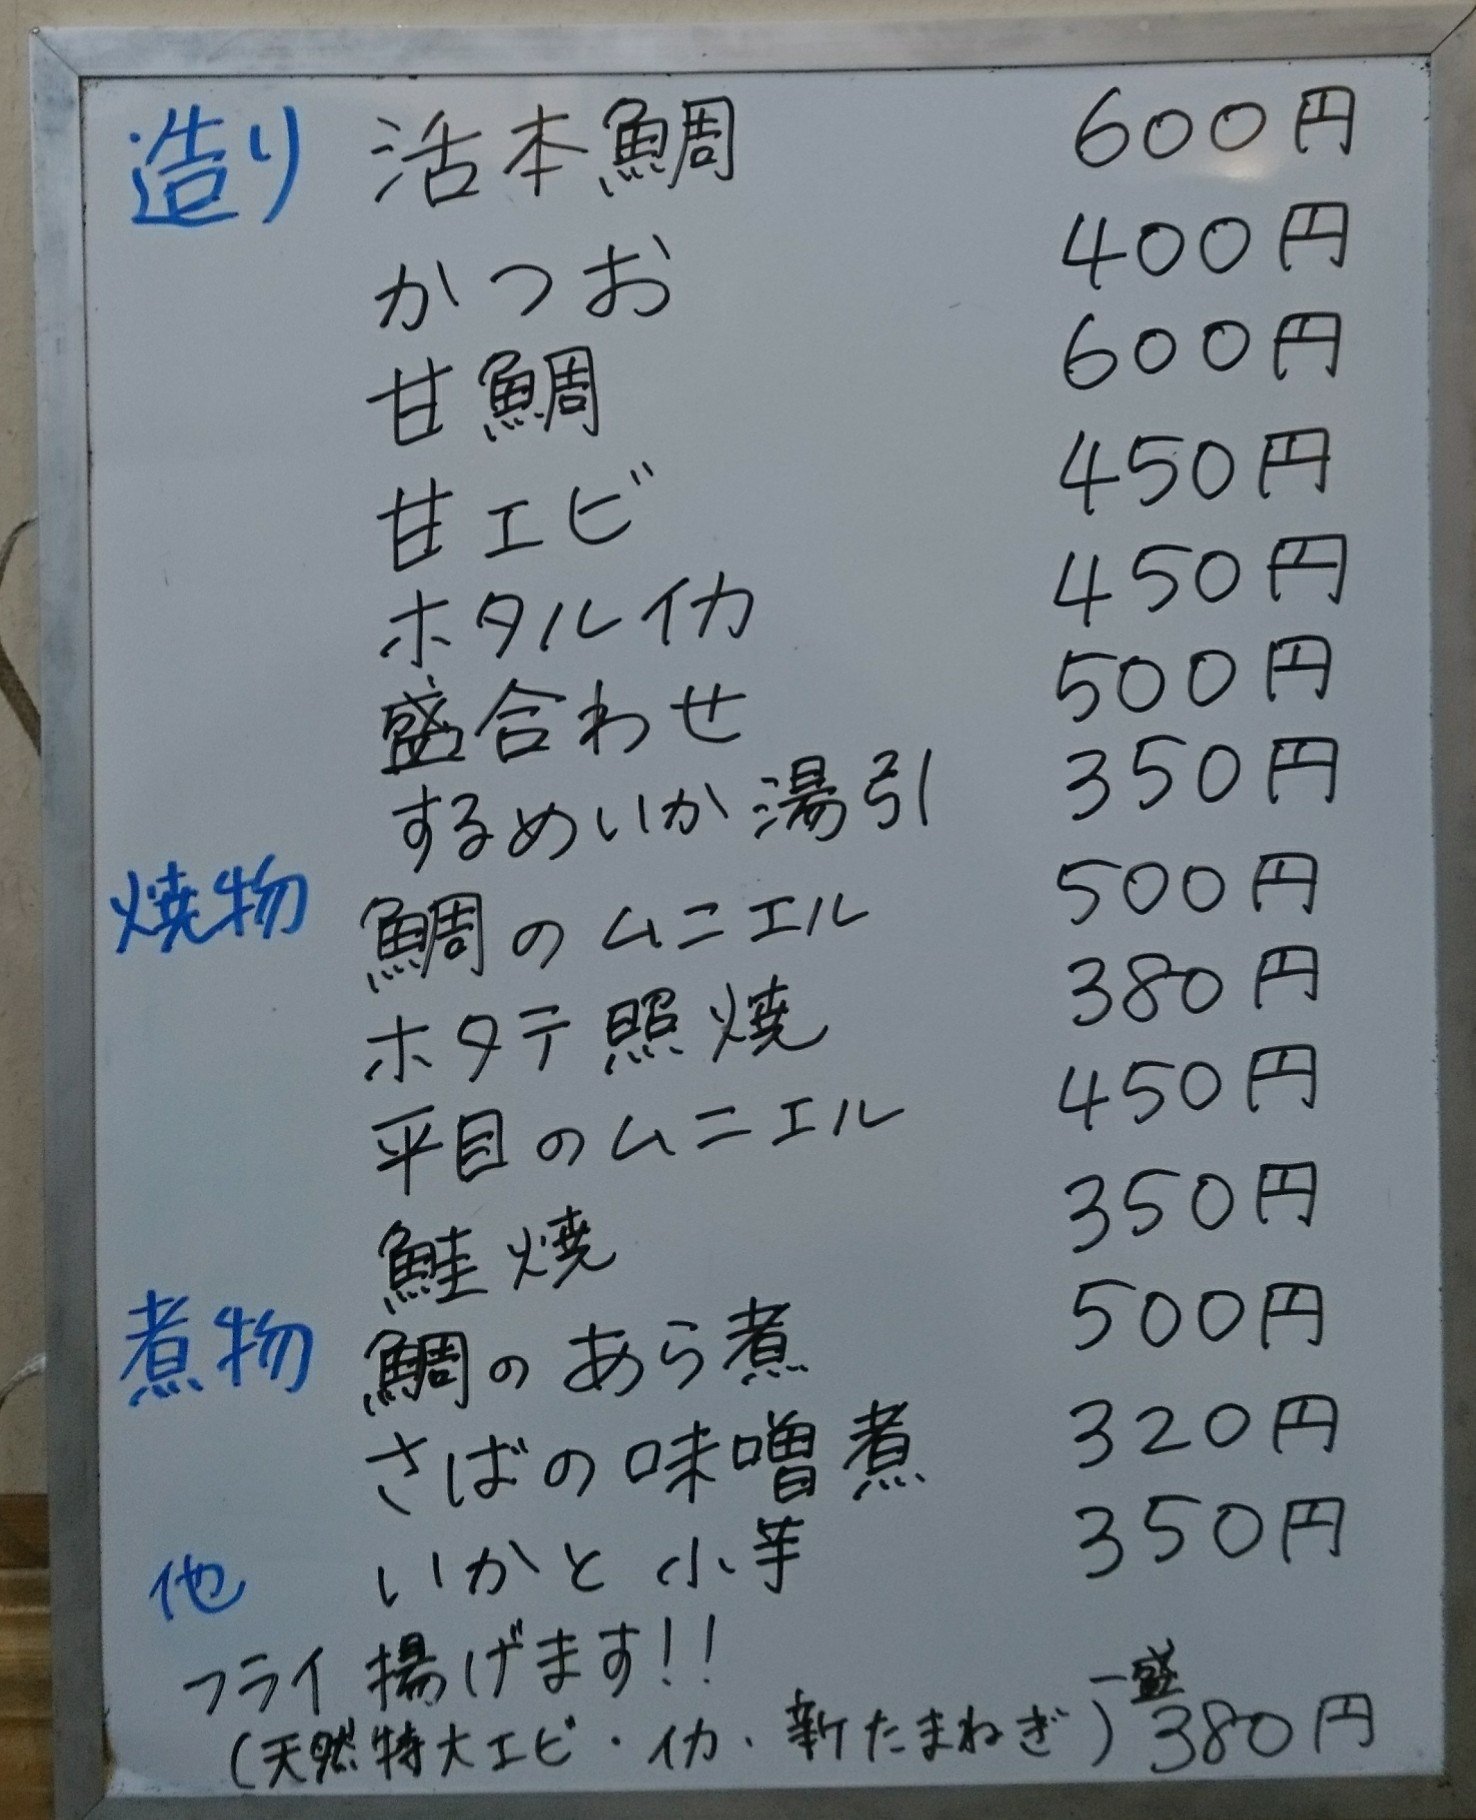 造り 活本鯛 600円
かつお 400円
甘鯛 600円
甘エビ 450円
ホタルイカ 450円
盛合わせ 500円
するめいか湯引 350円
焼物 鯛のムニエル 500円
ホタテ照焼 380円
平目のムニエル 450円
鮭焼 350円
煮物 鯛のあら煮 500円
さばの味噌煮 320円
いかと小芋 350円
他
フライ揚げます!!
(天然特大エビ・イカ、新たまねぎ) 一盛 380円